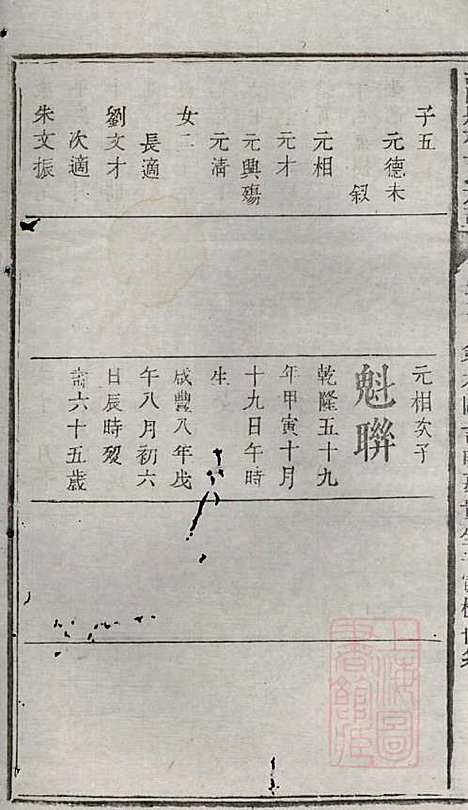 子五
元德未
叙
元相
元才
元興殤
元清
女二
長適
劉文才
次適
朱文振
元相次子
魁聯
乾隆五十九
年甲寅十月
十九日午時
生
咸豐八年戊
午八月初六
日辰時歿
壽六十五歲
上海圖
書館藏